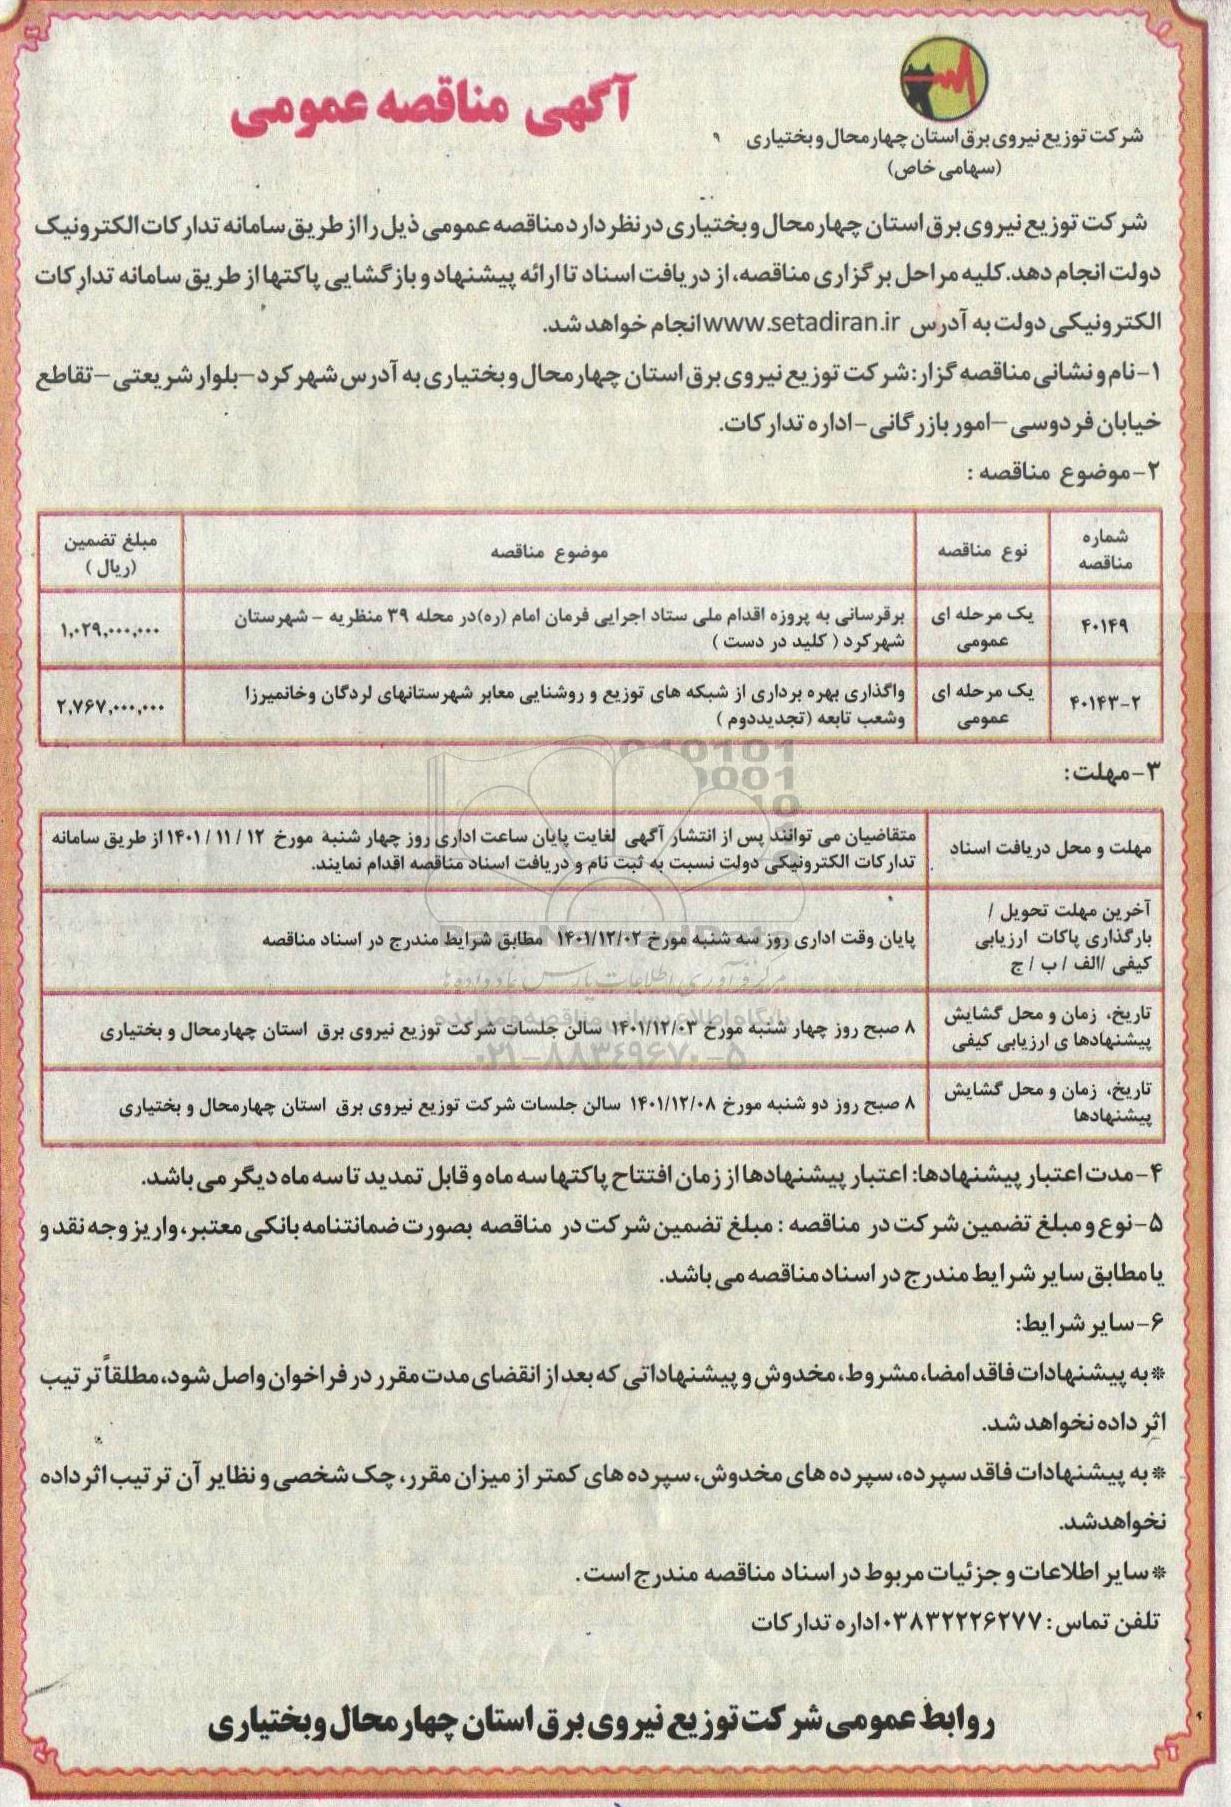 آگهی مناقصه عمومی
شرکت توزیع نیروی برق استان چهارمحال وبختیاری
(سهامی خاص)
شرکت توزیع نیروی برق استان چهارمحال وبختیاری در نظر دارد مناقصه عمومی ذیل را از طریق سامانه تدارکات الکترونیک
دولت انجام دهد. کلیه مراحل برگزاری مناقصه، از دریافت اسناد تا ارائه پیشنهاد و بازگشایی پاکتها از طریق سامانه تدارکات
الکترونیکی دولت به آدرس www.setadiran.ir انجام خواهد شد.
۱-نام و نشانی مناقصه گزار: شرکت توزیع نیروی برق استان چهارمحال وبختیاری به آدرس شهرکرد -بلوار شریعتی -تقاطع
خیابان فردوسی -امور بازرگانی -اداره تدارکات.
۲-موضوع مناقصه :
شماره مناقصه | نوع مناقصه | موضوع مناقصه | مبلغ تضمین (ریال )
۴۰۱۴۹ | یک مرحله ای عمومی | برقرسانی به پروزه اقدام ملی ستاد اجرایی فرمان امام (ره)در محله ۳۹ منظریه - شهرستان شهرکرد ( کلید در دست ) | ۱,۰۲۹,۰۰۰,۰۰۰
۴۰۱۴۳-۲ | یک مرحله ای عمومی | واگذاری بهره برداری از شبکه های توزیع و روشنایی معابر شهرستانهای لردگان وخانمیرزا وشعب تابعه (تجدیددوم ) | ۲,۷۶۷,۰۰۰,۰۰۰
۳-مهلت:
مهلت و محل دریافت اسناد | متقاضیان می توانند پس از انتشار آگهی لغایت پایان ساعت اداری روز چهار شنبه مورخ ۱۲ / ۱۱ / ۱۴۰۱ از طریق سامانه
تدارکات الکترونیکی دولت نسبت به ثبت نام و دریافت اسناد مناقصه اقدام نمایند.
آخرین مهلت تحویل /
بارگذاری پاکات ارزیابی
کیفی /الف / ب / ج | پایان وقت اداری روز سه شنبه مورخ ۱۴۰۱/۱۲/۰۲ مطابق شرایط مندرج در اسناد مناقصه
تاریخ، زمان و محل گشایش
پیشنهادها ی ارزیابی کیفی | ۸ صبح روز چهار شنبه مورخ ۱۴۰۱/۱۲/۰۳ سالن جلسات شرکت توزیع نیروی برق استان چهارمحال و بختیاری
تاریخ، زمان و محل گشایش
پیشنهادها | ۸ صبح روز دو شنبه مورخ ۱۴۰۱/۱۲/۰۸ سالن جلسات شرکت توزیع نیروی برق استان چهارمحال و بختیاری
مرکز فرآوری اطلاعات پارس ناد داده ها
پایگاه اطلاع رسانی مناقصه و مزایده
۰۲۱-۸۸۳۴۹۶۷۰-۵
۴-مدت اعتبار پیشنهادها: اعتبار پیشنهادها از زمان افتتاح پاکتها سه ماه و قابل تمدید تا سه ماه دیگر می باشد.
۵-نوع و مبلغ تضمین شرکت در مناقصه : مبلغ تضمین شرکت در مناقصه بصورت ضمانتنامه بانکی معتبر، واریز وجه نقد و
یا مطابق سایر شرایط مندرج در اسناد مناقصه می باشد.
۶-سایر شرایط:
* به پیشنهادات فاقد امضا، مشروط، مخدوش و پیشنهاداتی که بعد از انقضای مدت مقرر در فراخوان واصل شود، مطلقاً ترتیب
اثر داده نخواهد شد.
* به پیشنهادات فاقد سپرده، سپرده های مخدوش، سپرده های کمتر از میزان مقرر، چک شخصی و نظایر آن ترتیب اثر داده
نخواهدشد.
* سایر اطلاعات و جزئیات مربوط در اسناد مناقصه مندرج است.
تلفن تماس: ۰۳۸۳۲۲۲۶۲۷۷ اداره تدارکات
روابط عمومی شرکت توزیع نیروی برق استان چهارمحال وبختیاری